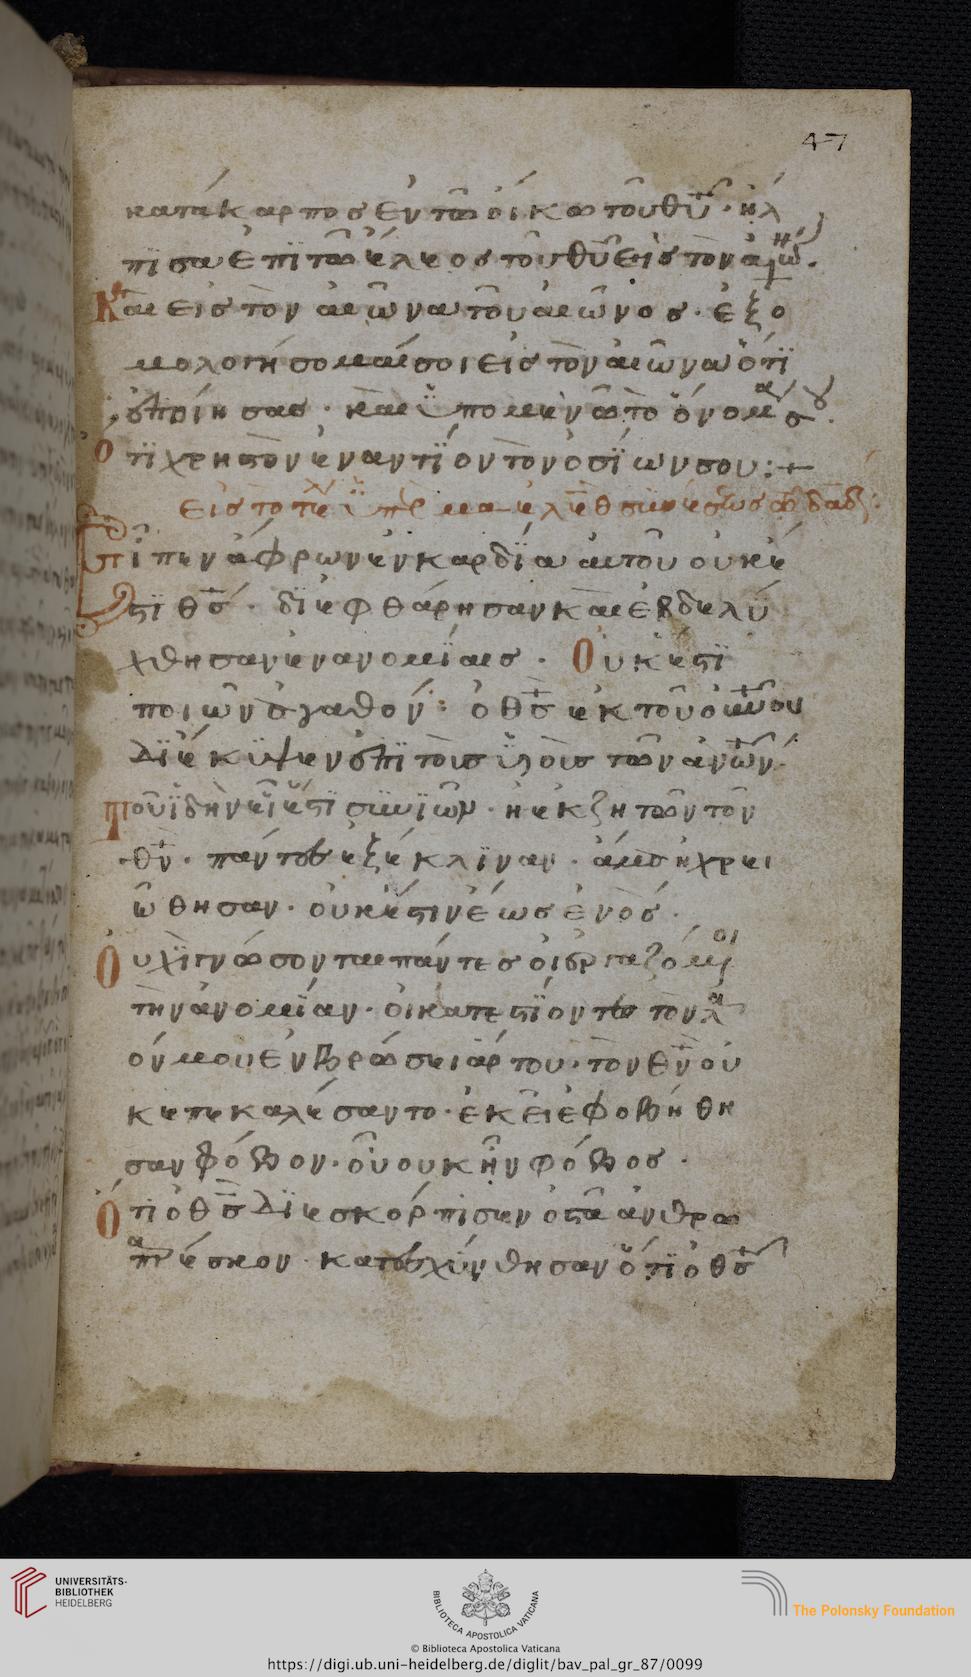 47
κατάκαρπος ἐν τῶ οἴκω τοῦ θυ̅· ἤλ
πισα ἐπι τῶ ἔλεος τοῦ θυ̅ εἰς τὸν αἰῶ.
Καὶ εἰς τὸν αιῶνα τοῦ αιῶνος· ἐξο
μολογήσομαί σοι εἰς τὸν αιῶνα ὅτι
ἐποίησας· καὶ ὑπομενῶ τὸ ὄνομά σου.
Ὅτι χρηστὸν ἐναντίον τὸν ὁσίων σου:+
Εἰς τὸ τέλ
Εἶπεν ἄφρων ἐν καρδία αυτοῦ ουκ ἔ
στι θς̅· διεφθάρησαν καὶ ἐβδελύ
χθησαν εν ανομίαις· Ουκ ἔστι
ποιῶν ἀγαθόν· ὁ θς̅ ἐκ τοῦ οὐνου
διέκυψεν ἐπι τοὺς υἱοὺς τῶν ἀνων·
Τοῦ ἰδῆν εἰ ἔστι συνιῶν· ἢ ἐκζητῶν τὸν
θν̅· πάντες ἐξέκλιναν· ἅμα ἠχρει
ώθησαν· οὐκ ἔστιν ἕως ἑνός·
Οὐχὶ γνώσονται πάντες οἱ ἐργαζόμοι
τὴν ἀνομίαν· οἱ κατεστίοντες τὸν λα
όν μου ἐν βρώσει ἄρτου· τὸν θν̅ οὐ
κ επεκαλέσαντο· ἐκεῖ ἐφοβήθη
σαν φόβον· οὗ ουκ ἦν φόβος·
Ὅτι ὁ θς̅ διεσκόρπισεν ὀστᾶ ἀνθρω
παρέσκον· κατεσχύνθησαν ὅτι ὁ θς̅
UNIVERSITÄTS-
BIBLIOTHEK
HEIDELBERG
BIBLIOTECA APOSTOLICA VATICANA
The Polonsky Foundation
© Biblioteca Apostolica Vaticana
https://digi.ub.uni-heidelberg.de/diglit/bav_pal_gr_87/0099